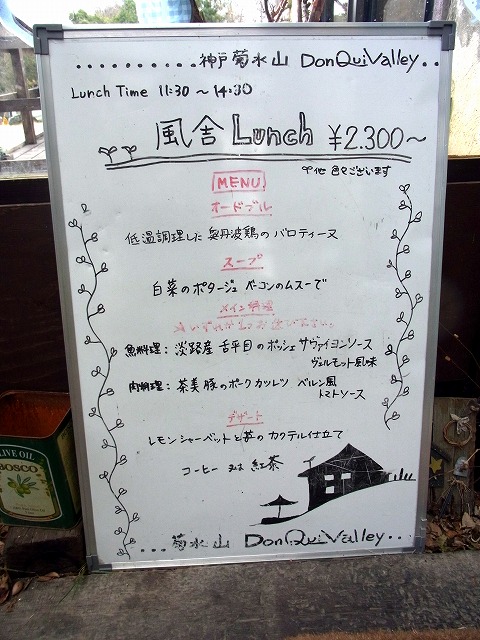 ..........神戸菊水山 DonQuiValley..
Lunch Time 11:30 〜 14:30
風舎 Lunch ¥2.300〜
他 色々ございます
MENU
オードブル
低温調理した 奥丹波鶏のバロティーヌ
スープ
白菜のポタージュ ベーコンのムースで
メイン料理
いずれか1つお選び下さい
魚料理: 淡路産 舌平目のポッシェ サヴァイヨンソース
ヴェルモット風味
肉料理: 茶美豚のポークカツレツ ベルン風
トマトソース
デザート
レモンシャーベットと苺の カクテル仕立て
コーヒー 又は 紅茶
....菊水山 DonQuiValley...
OLIVE OIL
BOSCO